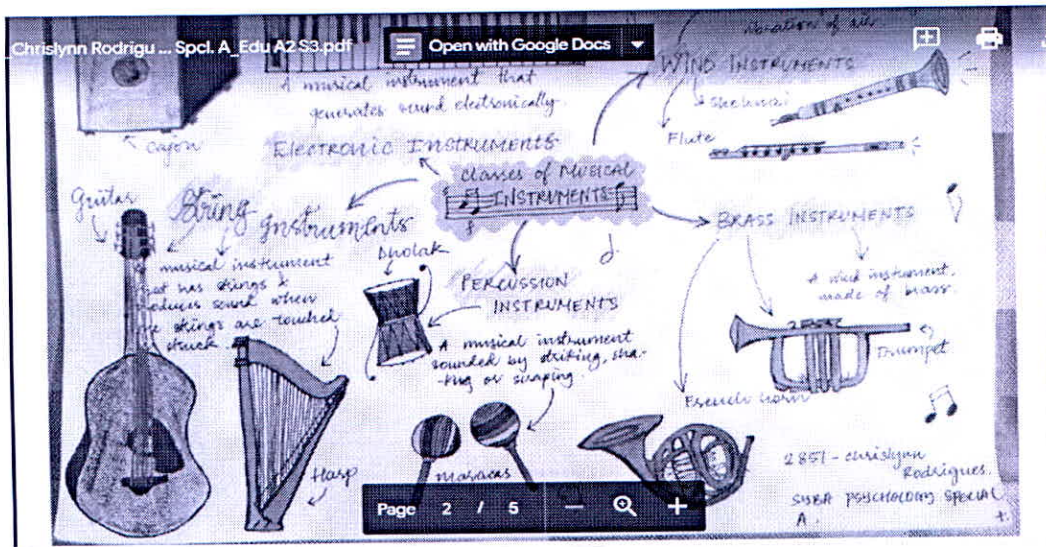 Chrislynn Rodrigu ... Spcl. A_Edu A2 S3.pdf
Open with Google Docs
vibration of air.
A musical instrument that
generates sound electronically.
WIND INSTRUMENTS
Shehnai
Flute
Cajon
ELECTRONIC INSTRUMENTS
Classes of MUSICAL
INSTRUMENTS
Guitar
String
Instruments
musical instrument
has strings &
sound when
strings are touched
struck.
Dholak
PERCUSSION
INSTRUMENTS
A musical instrument
sounded by striking, sha-
-king or scraping.
BRASS INSTRUMENTS
A wind instrument
made of brass.
2851
Trumpet
French horn
Harp
Maracas
2851 - Chrislynn
Rodrigues.
SYBA PSYCHOLOGY SPECIAL
A.
Page 2 / 5